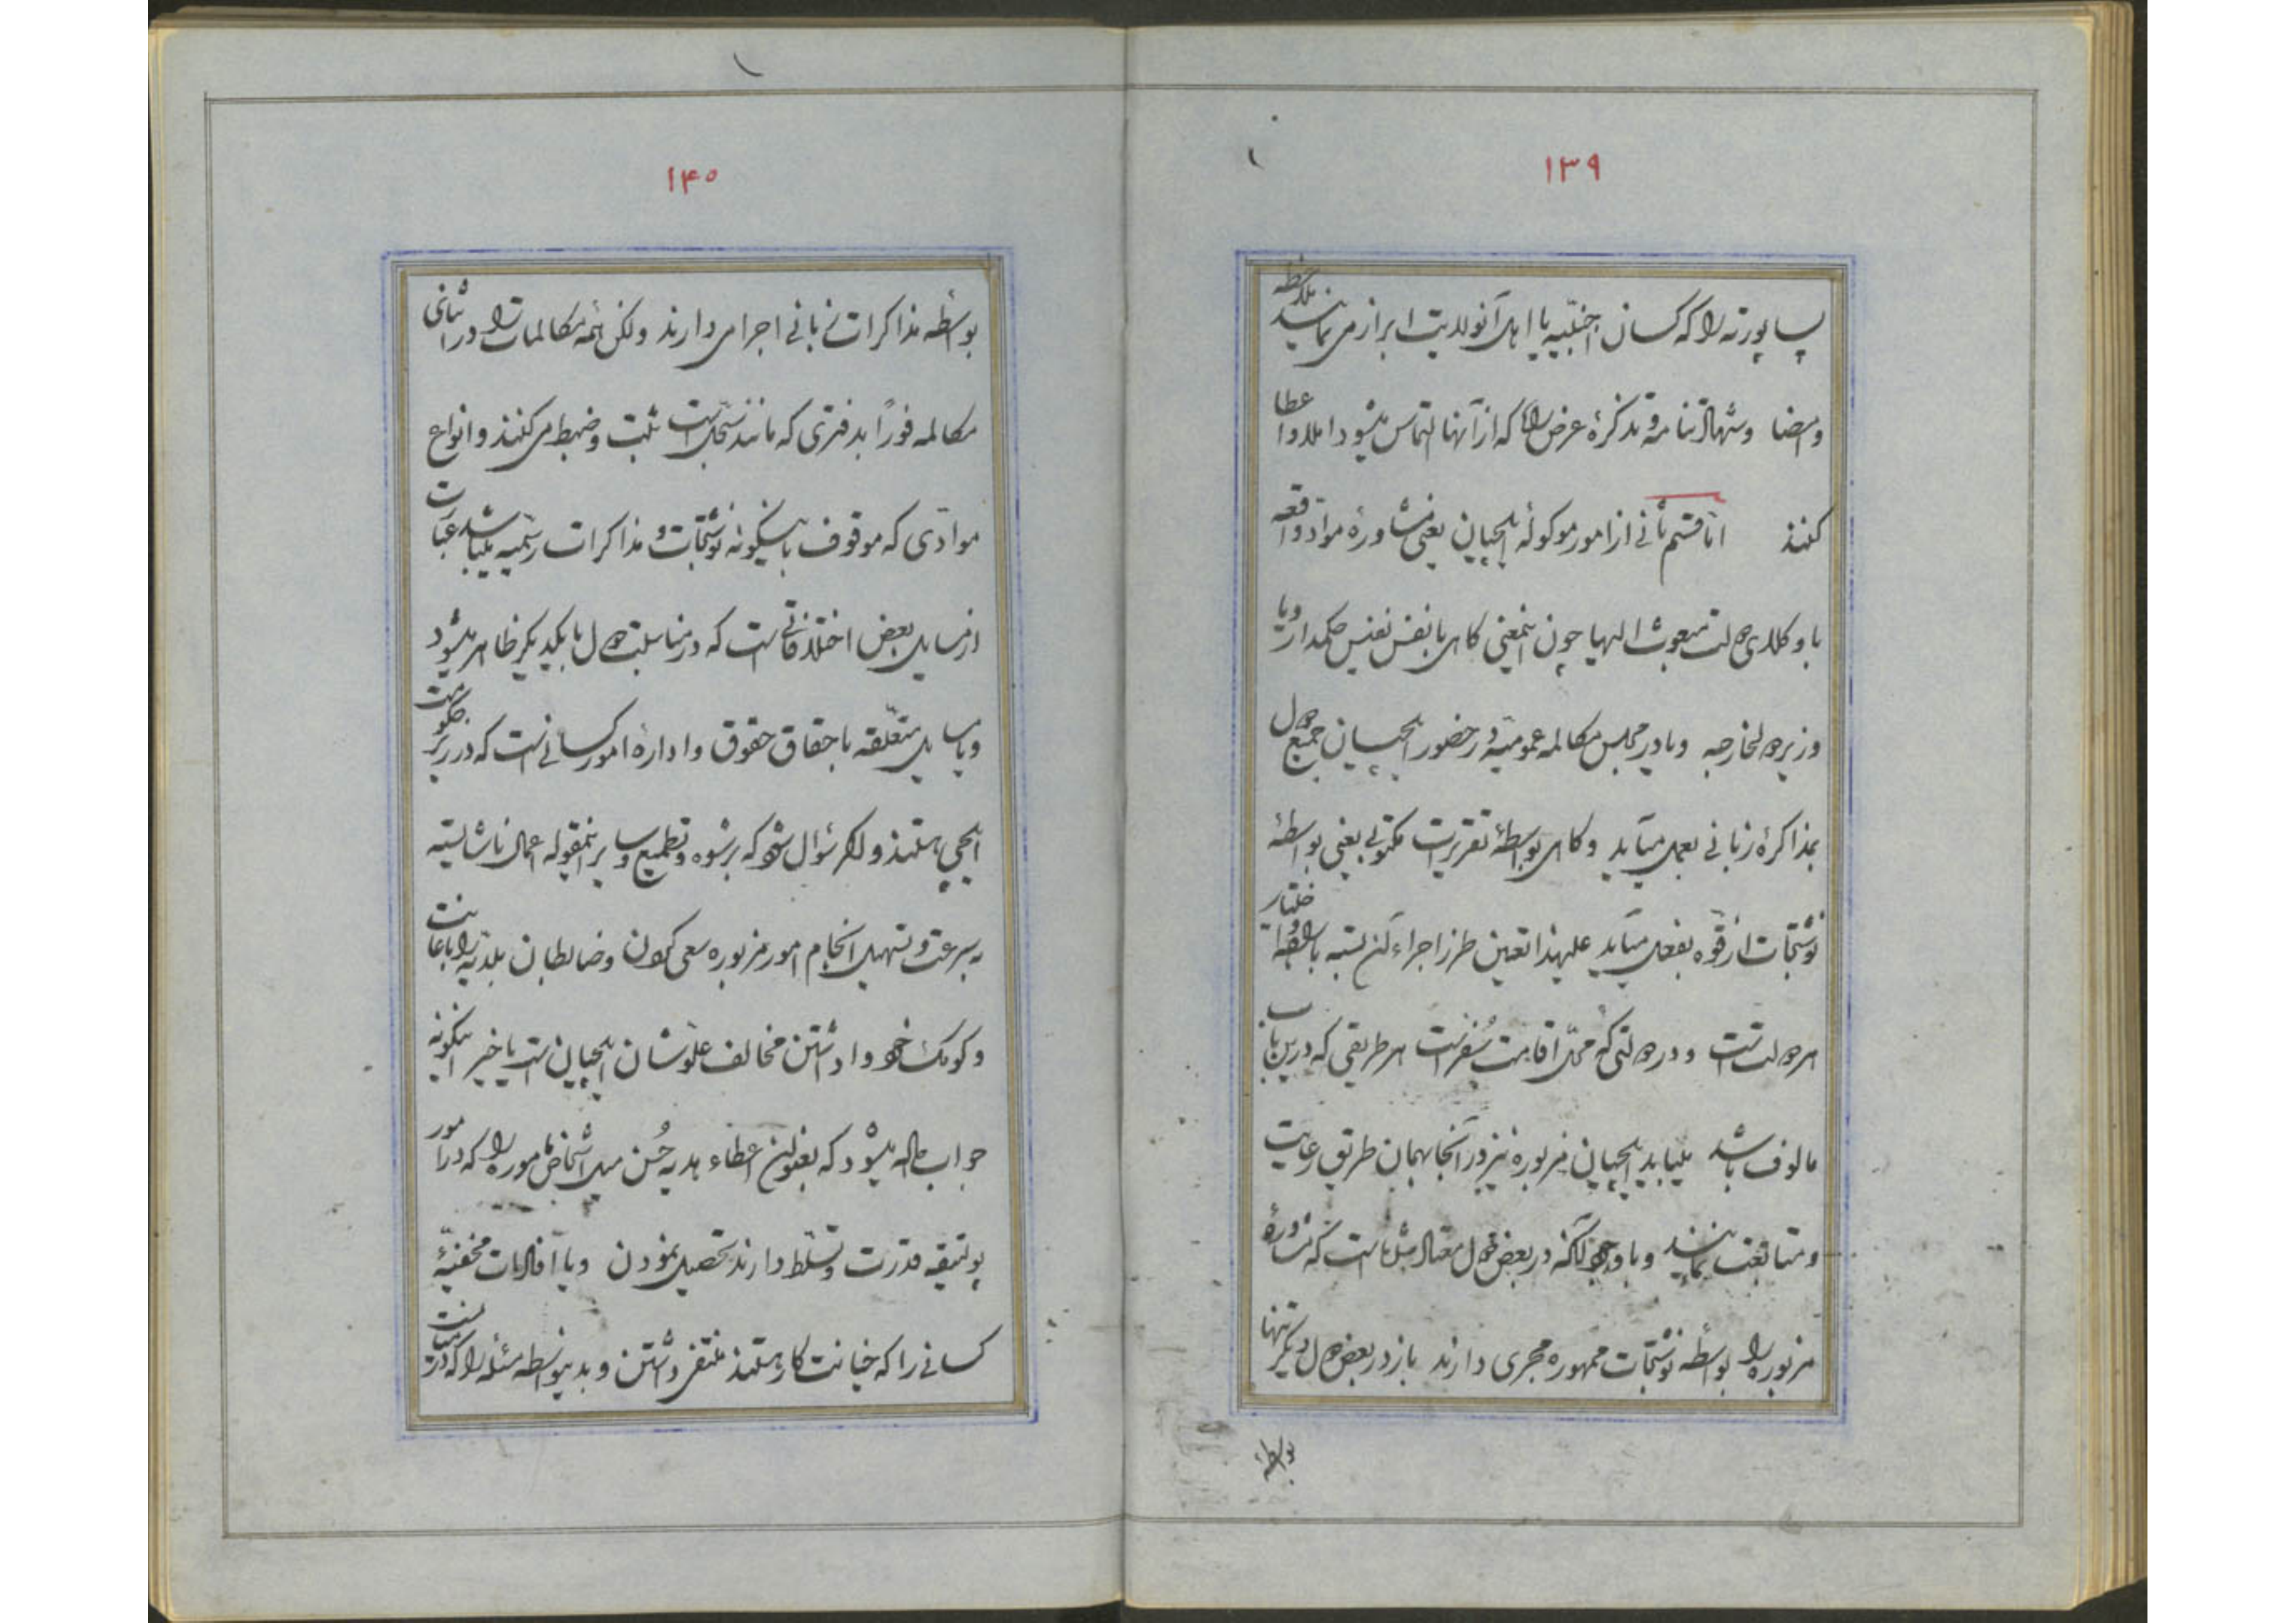 ۱۳۹
پساپورته را که کسان اجنبیه یا اهل آنولایت ابراز می نمایند ملاحظه
و امضا و شهادتنامه و تذکرهٔ عرض را که از آنها التماس میشود املا و اعطا
کنند اما قسم ثانی از امور موکولهٔ ایلچیان یعنی مشاورهٔ مواد واقعه
با وکلای دولت مبعوث الیها چون اینمعنی کاهی با نفس نفیس حکمدار و یا
وزیر دولخارجه و یا در مجلس مکالمه عمومیّه در حضور ایلچیان جمیع دول
بمذاکرهٔ زبانی بعمل میآید و کاهی بواسطهٔ تقریرات مکتوبی یعنی بواسطهٔ
نوشتجات از قوّه بفعل میآید علیهذا تعین طرز اجراء آن بسته باراده و اختیار
هر دولت است و در دولتی که محلّ اقامت سُفراست هر طریقی که درین باب
مالوف باشد میباید ایلچیان مزبوره نیز در آنجا بهمان طریق رعایت
و متابعت نمایند و با وجود آنکه در بعض دول معتاد مثل ماست که مشاورهٔ
مزبوره را بواسطه نوشتجات ممهوره مجری دارند باز در بعض دول دیگر تنها
بواسطهٔ
۱۴۰
بواسطه مذاکرات زبانی اجرا می دارند ولکن همه مکالمات را در اثنای
مکالمه فوراً بدفتری که مانند سجل است ثبت و ضبط می کنند و انواع
موادّی که موقوف باینگونه نوشتجات و مذاکرات رسمیه میباشد عبارت
از مسایل بعض اختلافاتی است که در مناسبت دول با یکدیگر ظاهر میشود
و یا مسایل متعلّقه باحقاق حقوق و ادارهٔ امور کسانی است که در زیر حکومت
ایلچی هستند و اکر سؤال شود که برشوه و تطمیع و سایر اینمقوله اعمال ناشایسته
به سرعت و تسهیل انجام امور مزبوره سعی کردن و ضابطان بلدیّه را باعانت
و کومک خود وا داشتن مخالف علوّ شان ایلچیان است یا خیر اینکونه
جواب داده میشود که بعنوان اعطاء هدیه حُسن میل اشخاص مأموره را که در امور
پولتیقه قدرت و تسلّط دارند تحصیل نمودن و یا افادات مخفیّهٔ
کسانی را که خیانت کار هستند متفر داشتن و بدینواسطه مسئله را که در میانت